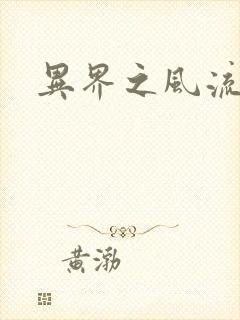 異界之風流
黃渤